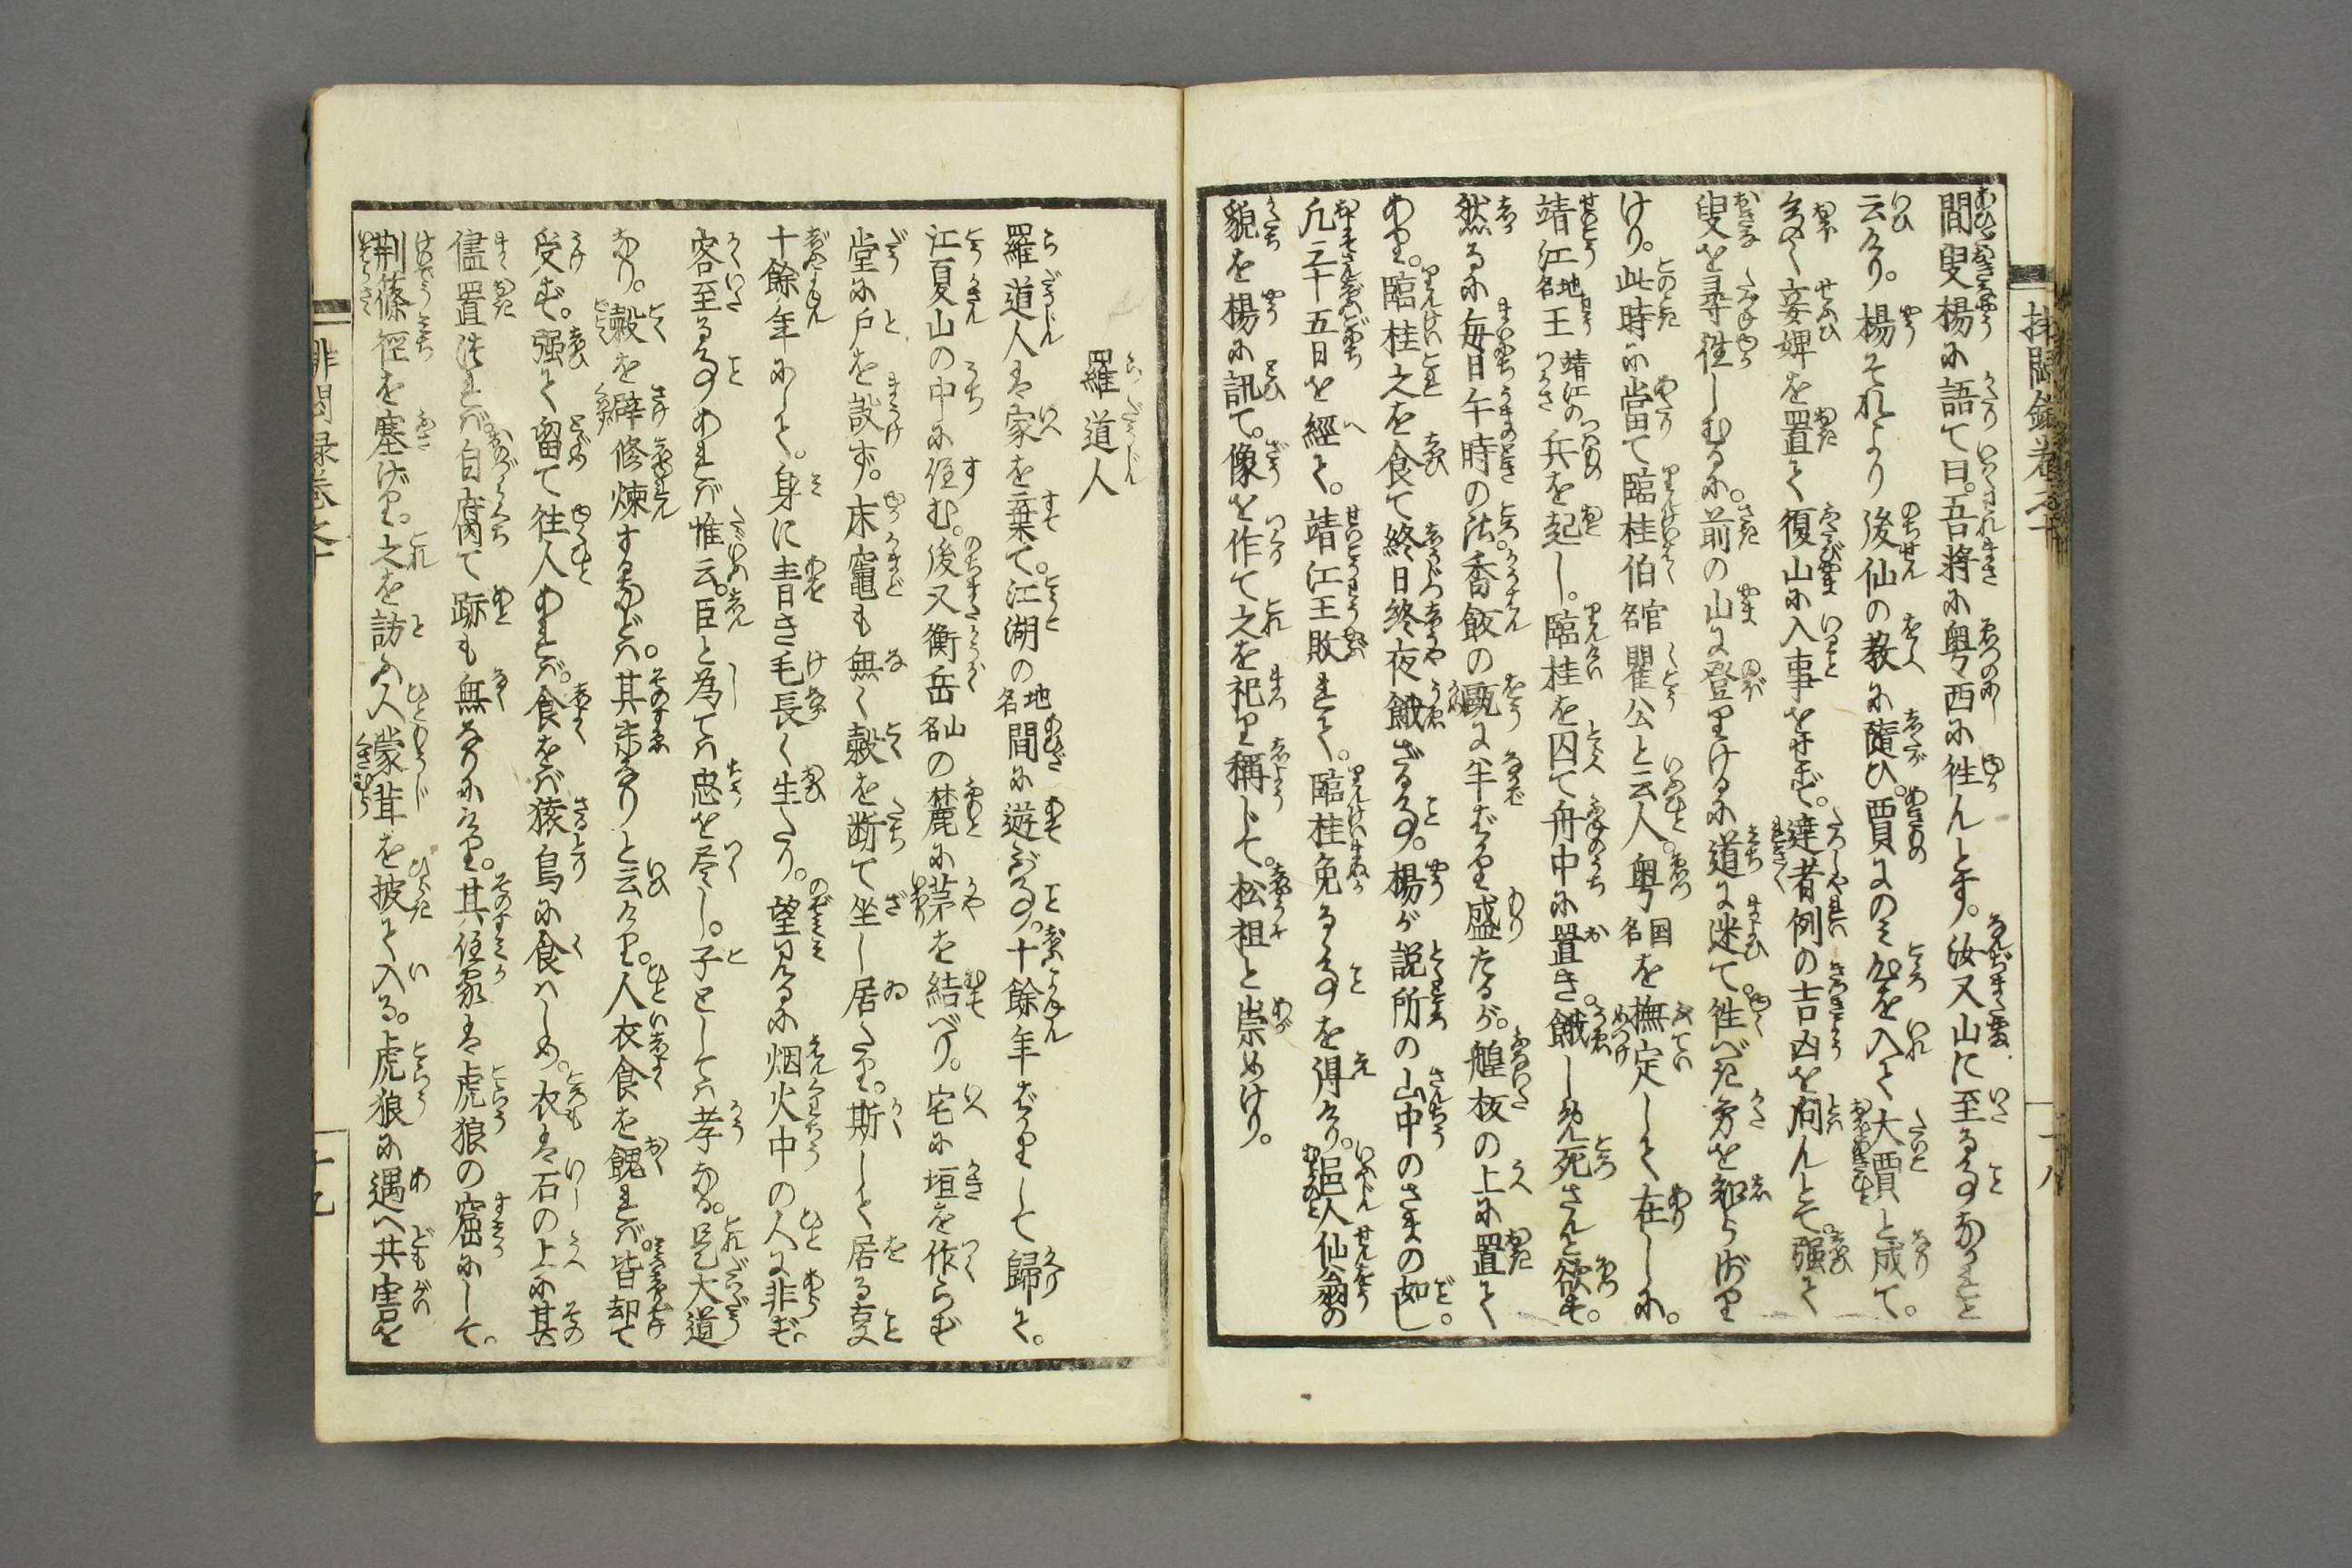 間叟楊に語て曰。吾将に粤西に徃んとす。汝又山に至る事なかれと
云けり。楊それより後仙の教に隨ひ。賈にのミ心を入て大賈と成て。
多く妾婢を置て復山に入事をせず。達者例の吉凶を問んとて。強て
叟を尋徃しむるに。前の山に登りけるに道に迷て。徃べき方を知らざり
けり。此時に當て臨桂伯官名瞿公と云人。粤国名を撫定して在しに。
靖江地名王靖江の兵を起し。臨桂を囚て舟中に置き。餓し死さんと欲す。
然るに毎日午時の比。香飯の甌に半ばかり盛たるが。艎板の上に置て
あり。臨桂之を食て終日終夜餓ざる事。楊が説所の山中のさまの如し。
凡三十五日を經て。靖江王敗れて。臨桂免るゝ事を得けり。邑人仙翁の
貌を楊に訊て。像を作て之を祀り稱して。松祖と崇めけり。
羅道人
羅道人は家を棄て。江湖の地名間に遊ぶ事。十餘年ばかりして歸て。
江夏山の中に住む。後又衡岳山名の麓に茅を結べり。宅に垣を作らず
堂に戸を設ず。床竈も無く穀を断て坐し居たり。斯して居る事
十餘年にして。身に青き毛長く生たり。望見るに烟火中の人に非ず。
客至る事あれば惟云。臣と為ては忠を尽し。子としては孝なる。是大道
なり。穀を辟修煉するなどハ。其末なりと云けり。人衣食を餽れば。皆却て
受ず。強て留て徃人あれば。食をば猿鳥に食ハしめ。衣は石の上に其
儘置けれバ。自腐て跡も無なりにけり。其住家は虎狼の窟にして。
荆篠徑を塞げり。之を訪ふ人蒙茸を披て入る。虎狼に遇へ共害を